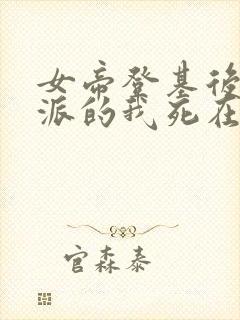 女帝登基後
派的我死在
官森泰